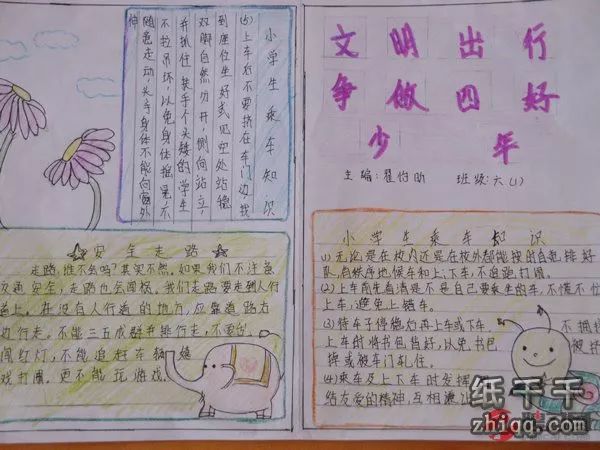 文明出行
争做四好
少年
主编：翟怡昕 班级：六(1)
小学生乘车知识
(1)无论是在校内还是在校外都能按自觉排好
队，有秩序地候车和上、下车，不追跑打闹。
(2)上车前先看清是不是自己要乘坐的车，不慌不忙
上车，避免上错车。
(3)待车子停稳后再上车或下车，不拥挤
上车时将书包挡好，以免书包被挤
掉或被车门轧住。
(4)乘车及上下车时发挥
结友爱的精神，互相谦让
小学生乘车知识
(5)上车后不要挤在车门边，找
到座位坐好或见空处站稳
双脚自然分开，侧向站立，
并抓住扶手，个头矮的学生
不拉吊环，以免身体摇晃不
随意走动，头手身体不能向窗外
伸
安全走路
走路，谁不会吗？其实不然，如果我们不注意
交通安全，走路也会闯祸。我们走路要走到人行
道上。在没有人行道的地方，应靠道路
边行走。不能三五成群并排行走，不要
闯红灯，不能追赶车辆嬉
戏打闹。更不能玩游戏。
纸千千
zhiqq.com